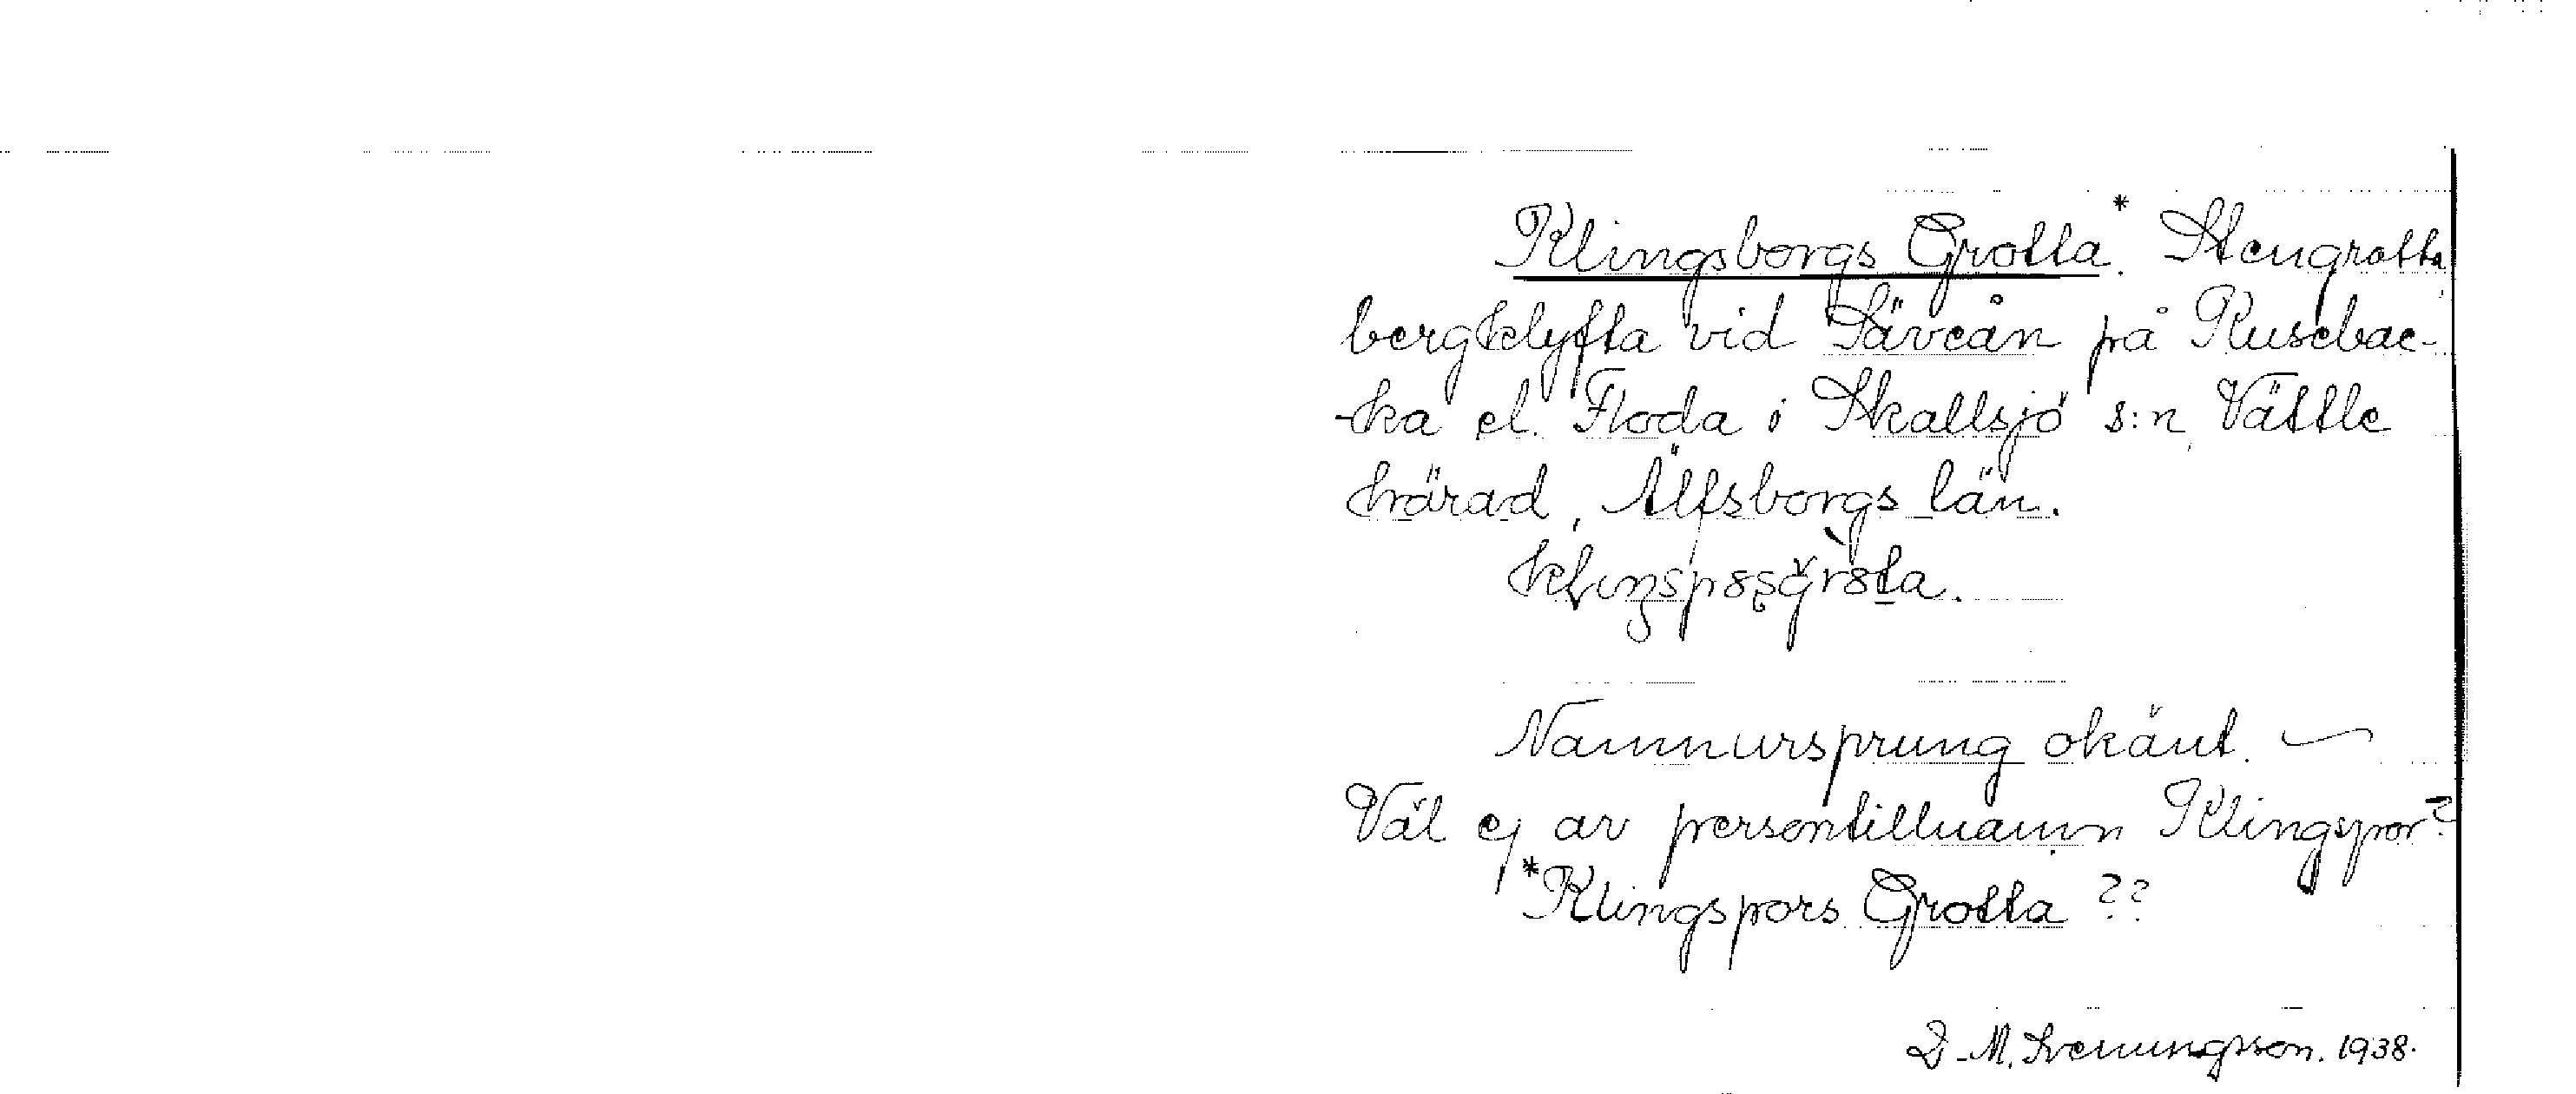 Klingsborgs Grotta.* Stengrotta,
bergklyfta vid Säveån på Rusebac-
-ka el. Floda i Skallsjö s:n, Vättle
härad, Älfsborgs län.
Namnursprung okänt. —
Väl ej av persontillnamn Klingspor?
*Klingspors Grotta ??
D-M. Svenungsson. 1938.